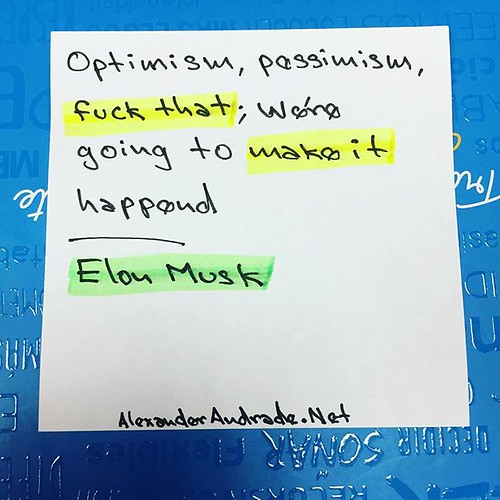 Optimism, pessimism,
fuck that; we're
going to make it
happend
Elon Musk
AlexanderAndrade.Net
DECIDIR SOÑAR Flexibles